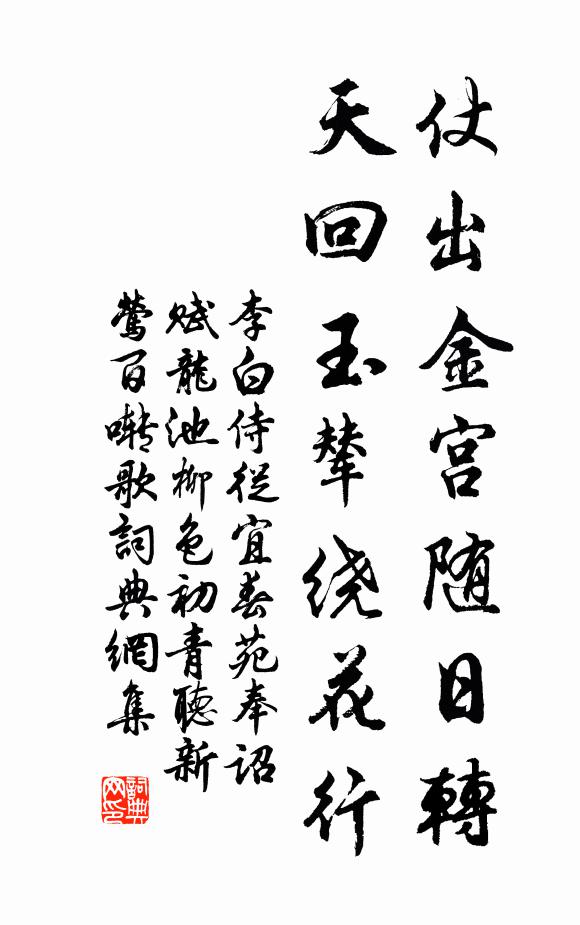 仗出金宫随日轉
天回玉輦绕花行
李白侍従宜春苑奉詔
赋龍池柳色初青聽新
鶯百囀歌詞典網集
詞典网印